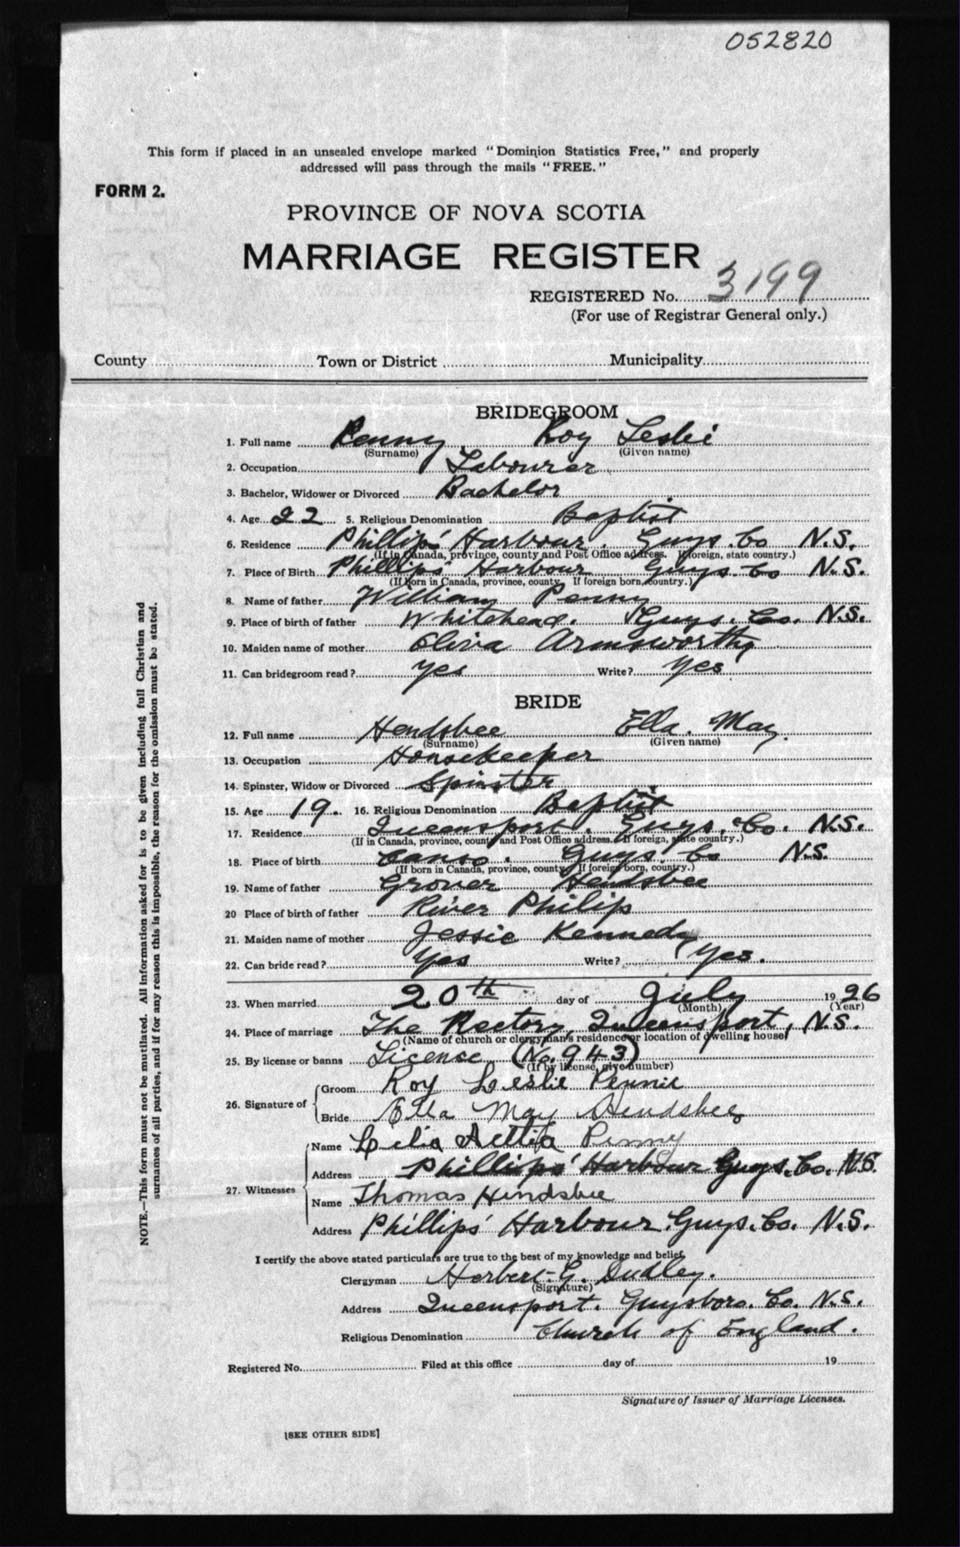 052820
This form if placed in an unsealed envelope marked "Dominion Statistics Free," and properly
addressed will pass through the mails "FREE."
FORM 2.
PROVINCE OF NOVA SCOTIA
MARRIAGE REGISTER
REGISTERED No. 3199
(For use of Registrar General only.)
County Town or District Municipality
NOTE.—This form must not be mutilated. All information asked for is to be given including full Christian and
surnames of all parties, and if for any reason this is impossible, the reason for the omission must be stated.
BRIDEGROOM
1. Full name Penny Roy Leslie
(Surname) (Given name)
2. Occupation Labourer
3. Bachelor, Widower or Divorced Bachelor
4. Age 22 5. Religious Denomination Baptist
6. Residence Phillips' Harbour. Guys. Co N.S.
(If in Canada, province, county and Post Office address. If foreign, state country.)
7. Place of Birth Phillips' Harbour Guys. Co N.S.
(If born in Canada, province, county. If foreign born, country.)
8. Name of father William Penny
9. Place of birth of father Whitehead. Guys. Co. N.S.
10. Maiden name of mother Oliva Armsworthy
11. Can bridegroom read? Yes Write? Yes
BRIDE
12. Full name Hendsbee Ella May.
(Surname) (Given name)
13. Occupation Housekeeper
14. Spinster, Widow or Divorced Spinster
15. Age 19. 16. Religious Denomination Baptist
17. Residence Queensport. Guys. Co. N.S.
(If in Canada, province, county and Post Office address. If foreign, state country.)
18. Place of birth Canso. Guys. Co N.S.
(If born in Canada, province, county. If foreign born, country.)
19. Name of father Grover Hendsbee
20 Place of birth of father River Philip
21. Maiden name of mother Jessie Kennedy
22. Can bride read? Yes Write? Yes.
23. When married 20th day of July 1926
(Month) (Year)
24. Place of marriage The Rectory, Queensport, N.S.
(Name of church or clergyman's residence or location of dwelling house)
25. By license or banns License (No. 943)
(If by license, give number)
26. Signature of Groom Roy Leslie Pennie
Bride Ella May Hendsbee
27. Witnesses Name Lelia Penny
Address Phillips' Harbour Guys. Co. N.S.
Name Thomas Hindsbee
Address Phillips' Harbour. Guys. Co. N.S.
I certify the above stated particulars are true to the best of my knowledge and belief.
Clergyman Herbert G. Dudley.
(Signature)
Address Queensport. Guysboro. Co. N.S.
Religious Denomination Church of England.
Registered No. Filed at this office day of 19
Signature of Issuer of Marriage Licenses.
[SEE OTHER SIDE]